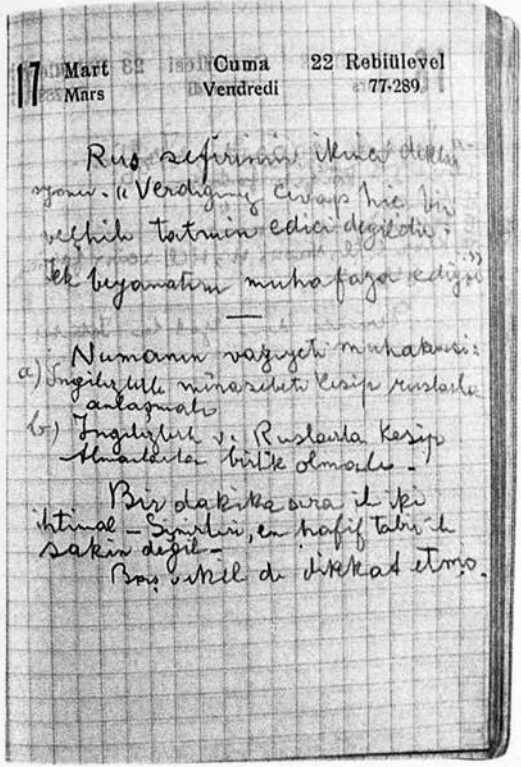 17 Mart Cuma 22 Rebiülevel
Mars Vendredi 77-289
Rus sefirinin ikinci dekla
syonu. "Verdiğiniz cevap hiç bir
veçhile tatmin edici değildir.
ilk beyanatımı muhafaza ediyo
Numanın vaziyeti muhakemesi:
a) İngilizlerle münasebeti kesip ruslarla
anlaşmalı
b) İngilizlerle ve Ruslarla kesip
Almanlarla birlik olmalı -
Bir dakika sıra ile iki
ihtimal - Sinirleri, en hafif tabir ile
sakin değil -
Baş vekil de dikkat etmiş.